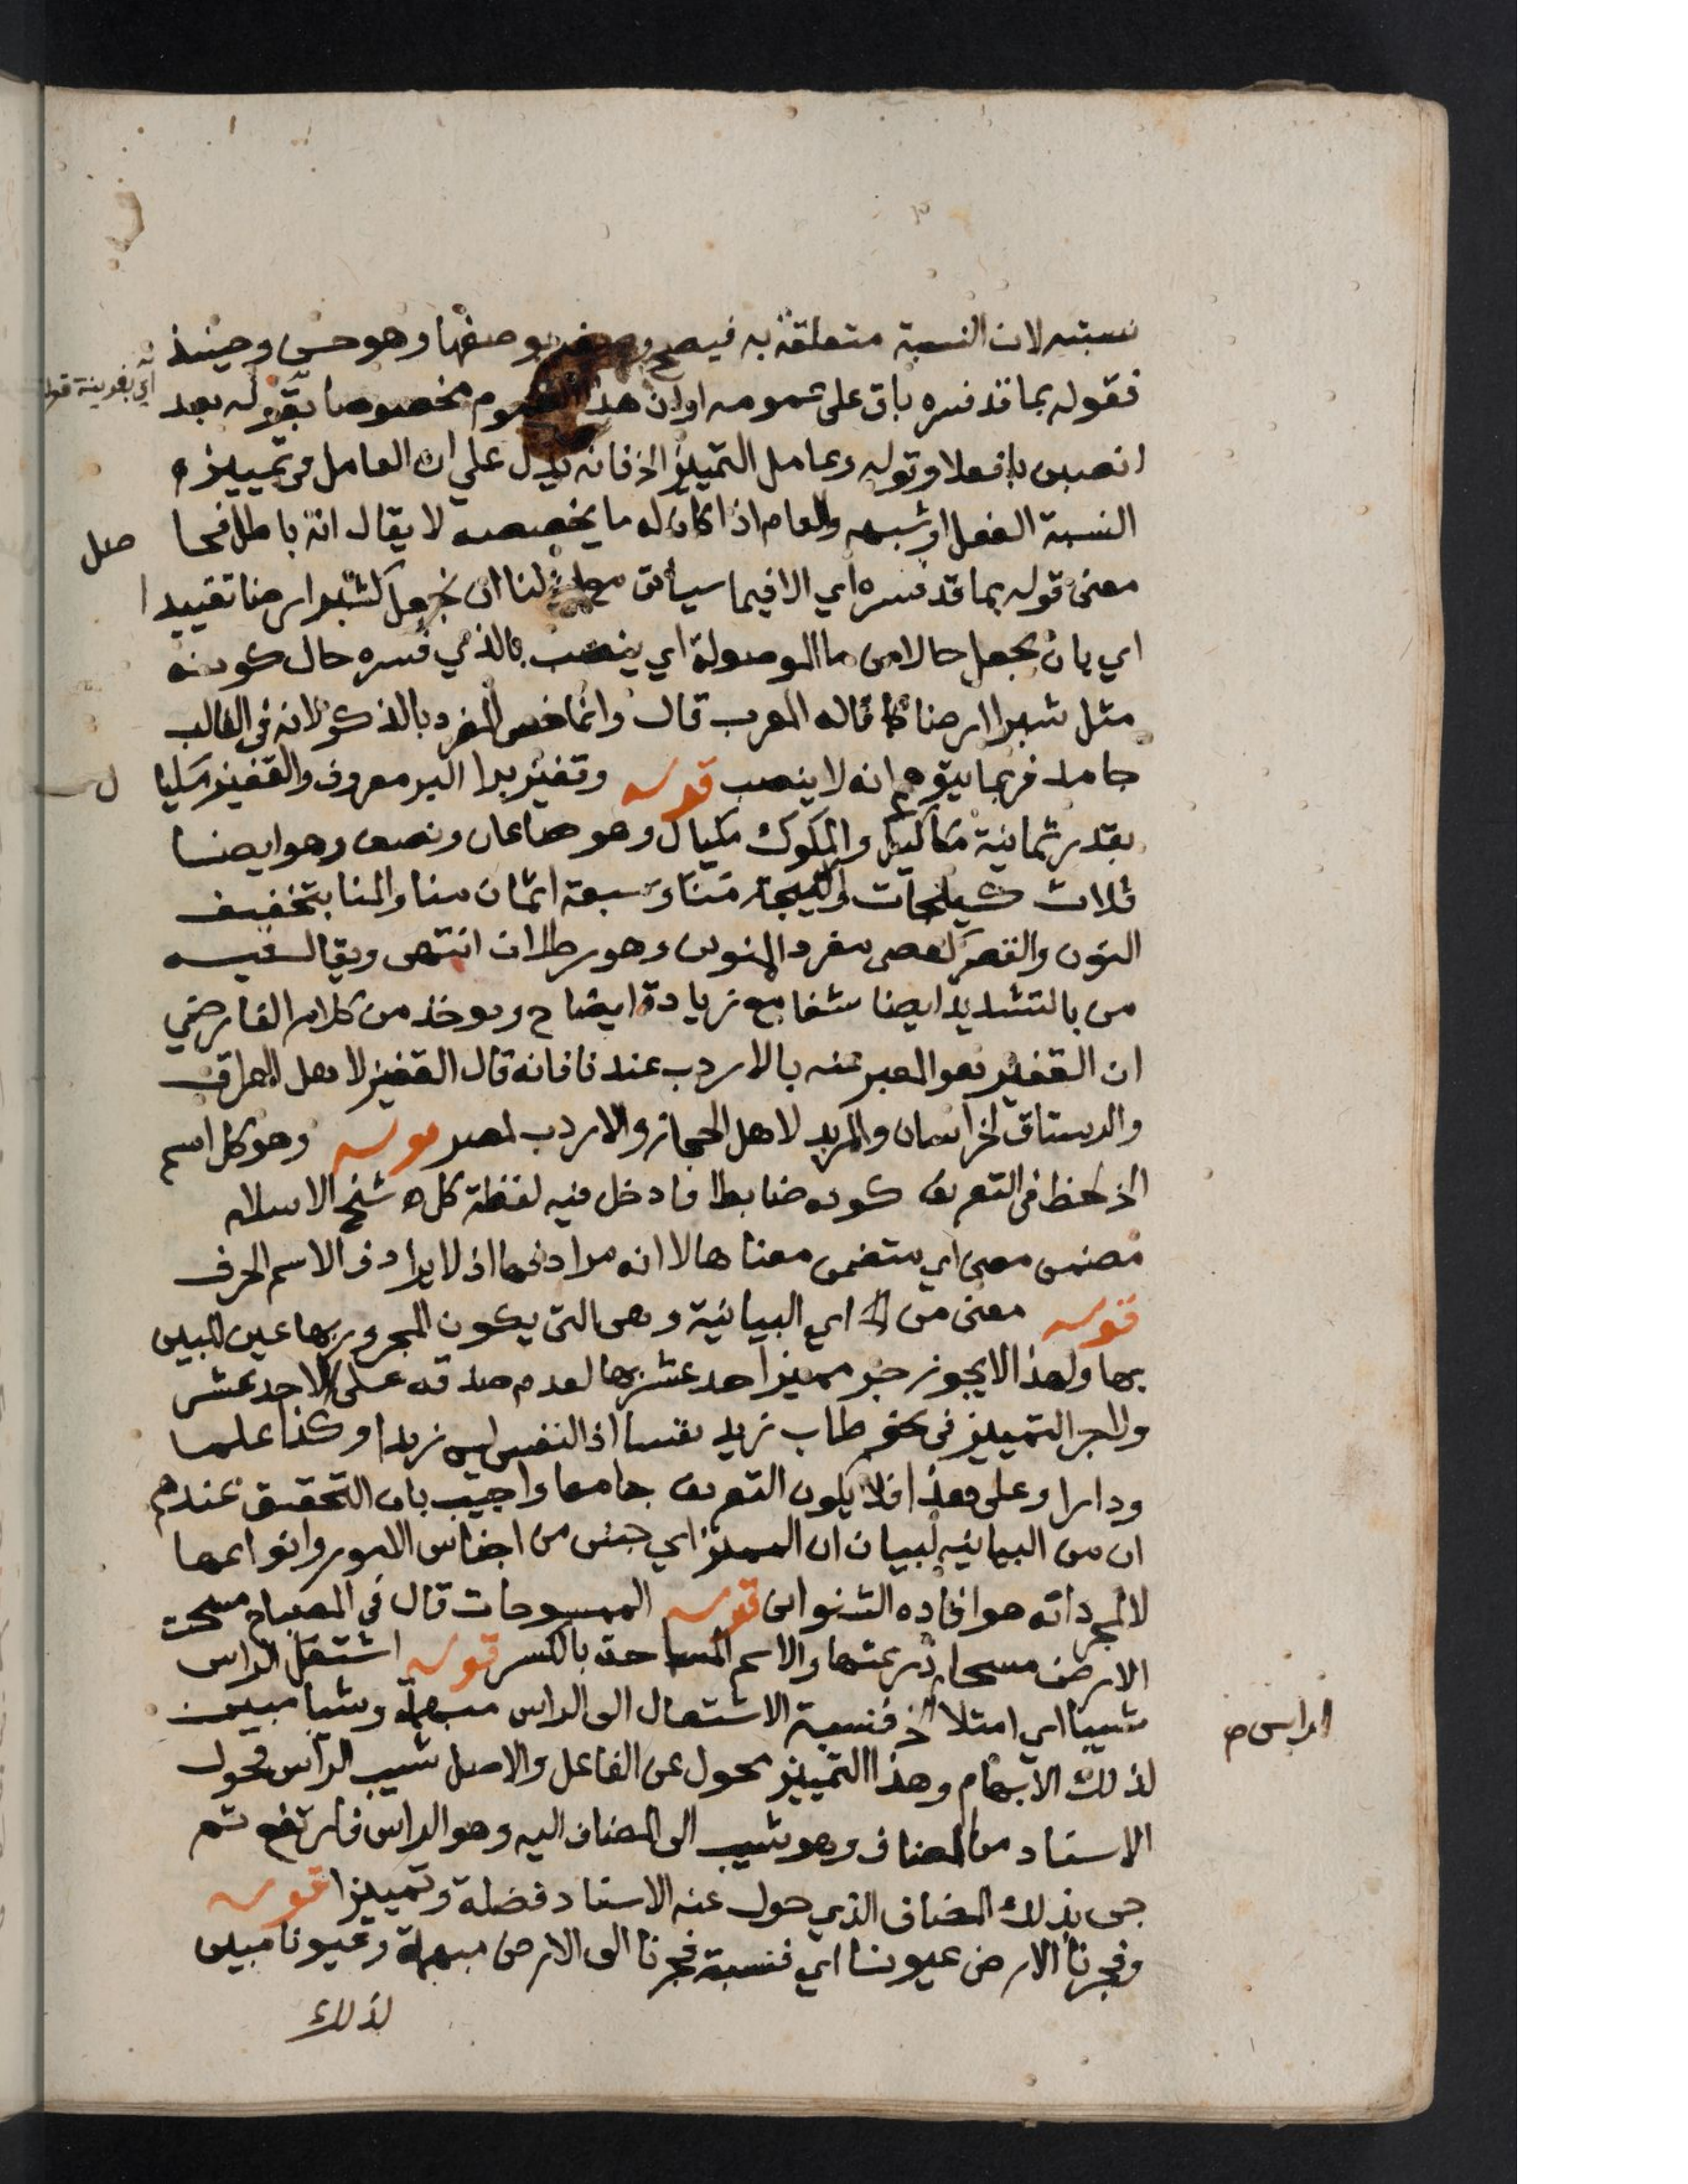 نسبته لان النسبة متعلقة به فيصح وصفه بوصفها وهو حسن وحينئذ
فقوله بما قد فسره باق على عمومه او ان هذا العموم مخصوصا بقوله بعد
اي بقرينة قوله
انصبن بافعلا وقوله وعامل التمييز الخ فانه يدل على ان العامل في تمييزه
النسبة الفعل او شبهه والعام اذا كان له ما يخصصه لا يقال انه باطل فحا
صل
معنى قوله بما قد فسره اي الا فيما سياتي لنا ان نجعل كشبر ارضا تقييدا
اي بان يجعل حالا من ما الموصولة اي ينصب بالذي فسره حال كونه
مثل شبرا ارضا كما قاله المعرب قال وانما خص المفرد بالذكر لانه في الغالب
جامد فربما يتوهم انه لا ينصب قوله وقفيز برا البر معروف والقفيز مكيا
ل
بقدر ثمانية مكاكيك والمكوك مكيال وهو صاعان ونصف وهو ايضا
ثلاث كيلجات والكيلجة منا وسبعة اثمان منا والمنا بتخفيف
النون والقصر كعصى مفرد المنوين وهو رطلان انتهى ويقال فيه
من بالتشديد ايضا شفا مع زيادة ايضاح ويوخذ من كلام الفارضي
ان القفيز هو المعبر عنه بالاردب عندنا فانه قال القفيز لاهل العراق
والرستاق لخراسان والمربد لاهل الحجاز والاردب لمصر قوله وهو كل اسم
الخ لحظ في التعريف كونه ضابطا فادخل فيه لفظة كل ه شيخ الاسلام
مضمن معنى اي متضمن معناها لا انه مرادفها اذ لا يرادف الاسم الحرف
قوله معنى من الخ اي البيانية وهي التي يكون المجرور بها عين المبين
بها ولهذا لا يجوز جر مميز احد عشر بها لعدم صدقه على الاحد عشر
ولا جر التمييز في نحو طاب زيد نفسا اذ النفس ليس زيدا وكذا علما
ودارا وعلى هذا فلا يكون التعريف جامعا واجيب بان التحقيق عندهم
ان من البيانيه لبيان ان المميز اي جنس من اجناس الامور وانواعها
لا لمجرد انه هو افاده الشنواني قوله الممسوحات قال في المصباح مسحت
الارض مسحا ذرعتها والاسم المساحة بالكسر قوله اشتعل الراس
شيبا اي امتلا الخ فنسبة الاشتعال الى الراس مبهمة وشيبا مبين
الراس ص
لذلك الابهام وهذا التمييز محول عن الفاعل والاصل شيب الراس فحول
الاسناد من المضاف وهو شيب الى المضاف اليه وهو الراس فارتفع ثم
جي بذلك المضاف الذي حول عنه الاسناد فضلة وتمييزا قوله
وفجرنا الارض عيونا اي فنسبة فجرنا الى الارض مبهمة وعيونا مبين
لذلك